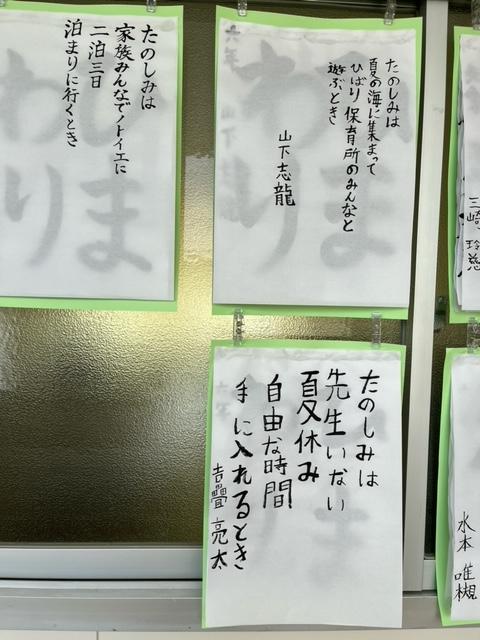 たのしみは
夏の海に集まって
ひばり保育所のみんなと
遊ぶとき
山下志龍
たのしみは
家族みんなでノトイエに
二泊三日
泊まりに行くとき
たのしみは
先生いない
夏休み
自由な時間
手に入れるとき
吉疊 亮太
三崎 玲慈
水本 唯槻